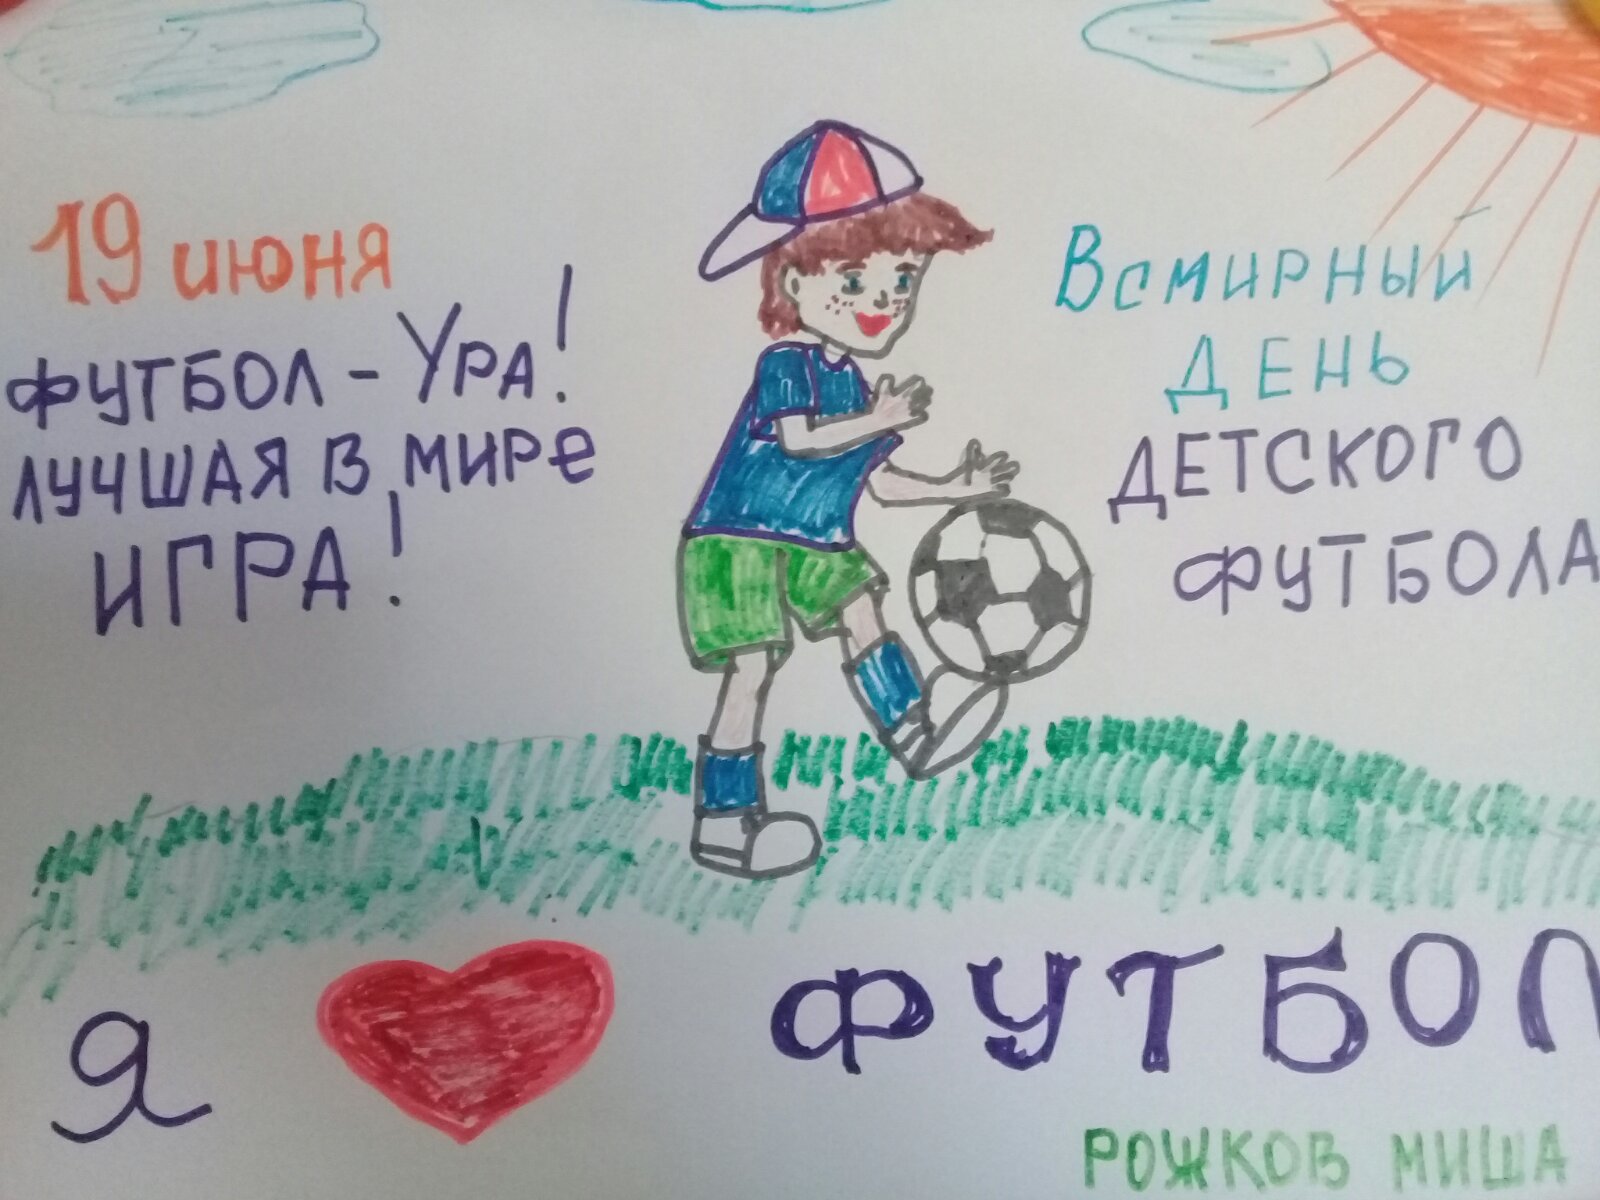 19 июня
ФУТБОЛ - УРА!
ЛУЧШАЯ В МИРЕ
ИГРА!
Всмирный
ДЕНЬ
ДЕТСКОГО
ФУТБОЛА
Я ФУТБОЛ
РОЖКОВ МИША